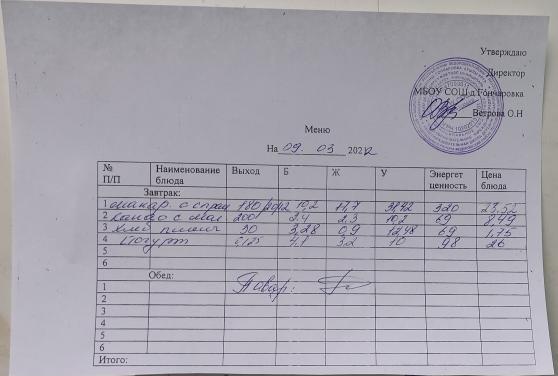 Утверждаю
Директор
МБОУ СОШ д.Гончаровка
Ветрова О.Н
Меню
На 09. 03 2022
№ П/П Наименование блюда Выход Б Ж У Энергет ценность Цена блюда
Завтрак:
1 макар. с 180 10,2 320 23,55
2 Какао с мол 200 2,4 2,3 10,2 69 8,49
3 Хлеб пшенич 30 3,28 0,9 12,48 69 1,75
4 Йогурт 125 4,1 3,2 10 98 26
5
6
Обед:
1 Повар:
2
3
4
5
6
Итого: